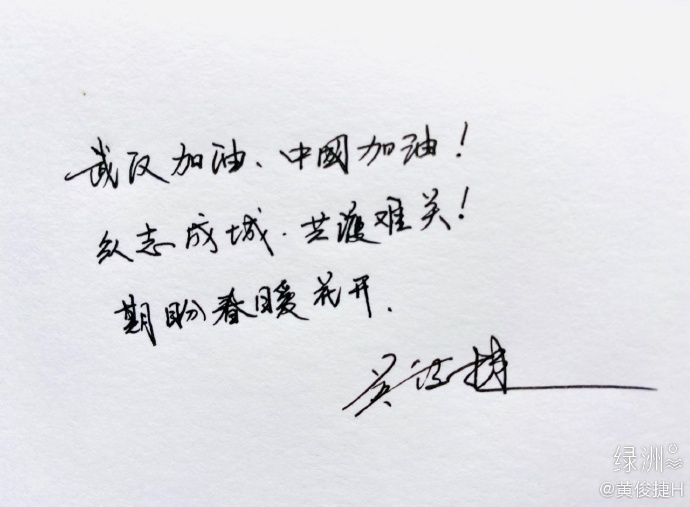 武汉加油、中國加油！
众志成城.共渡难关！
期盼春暖花开.
黄俊捷
绿洲
@黄俊捷H